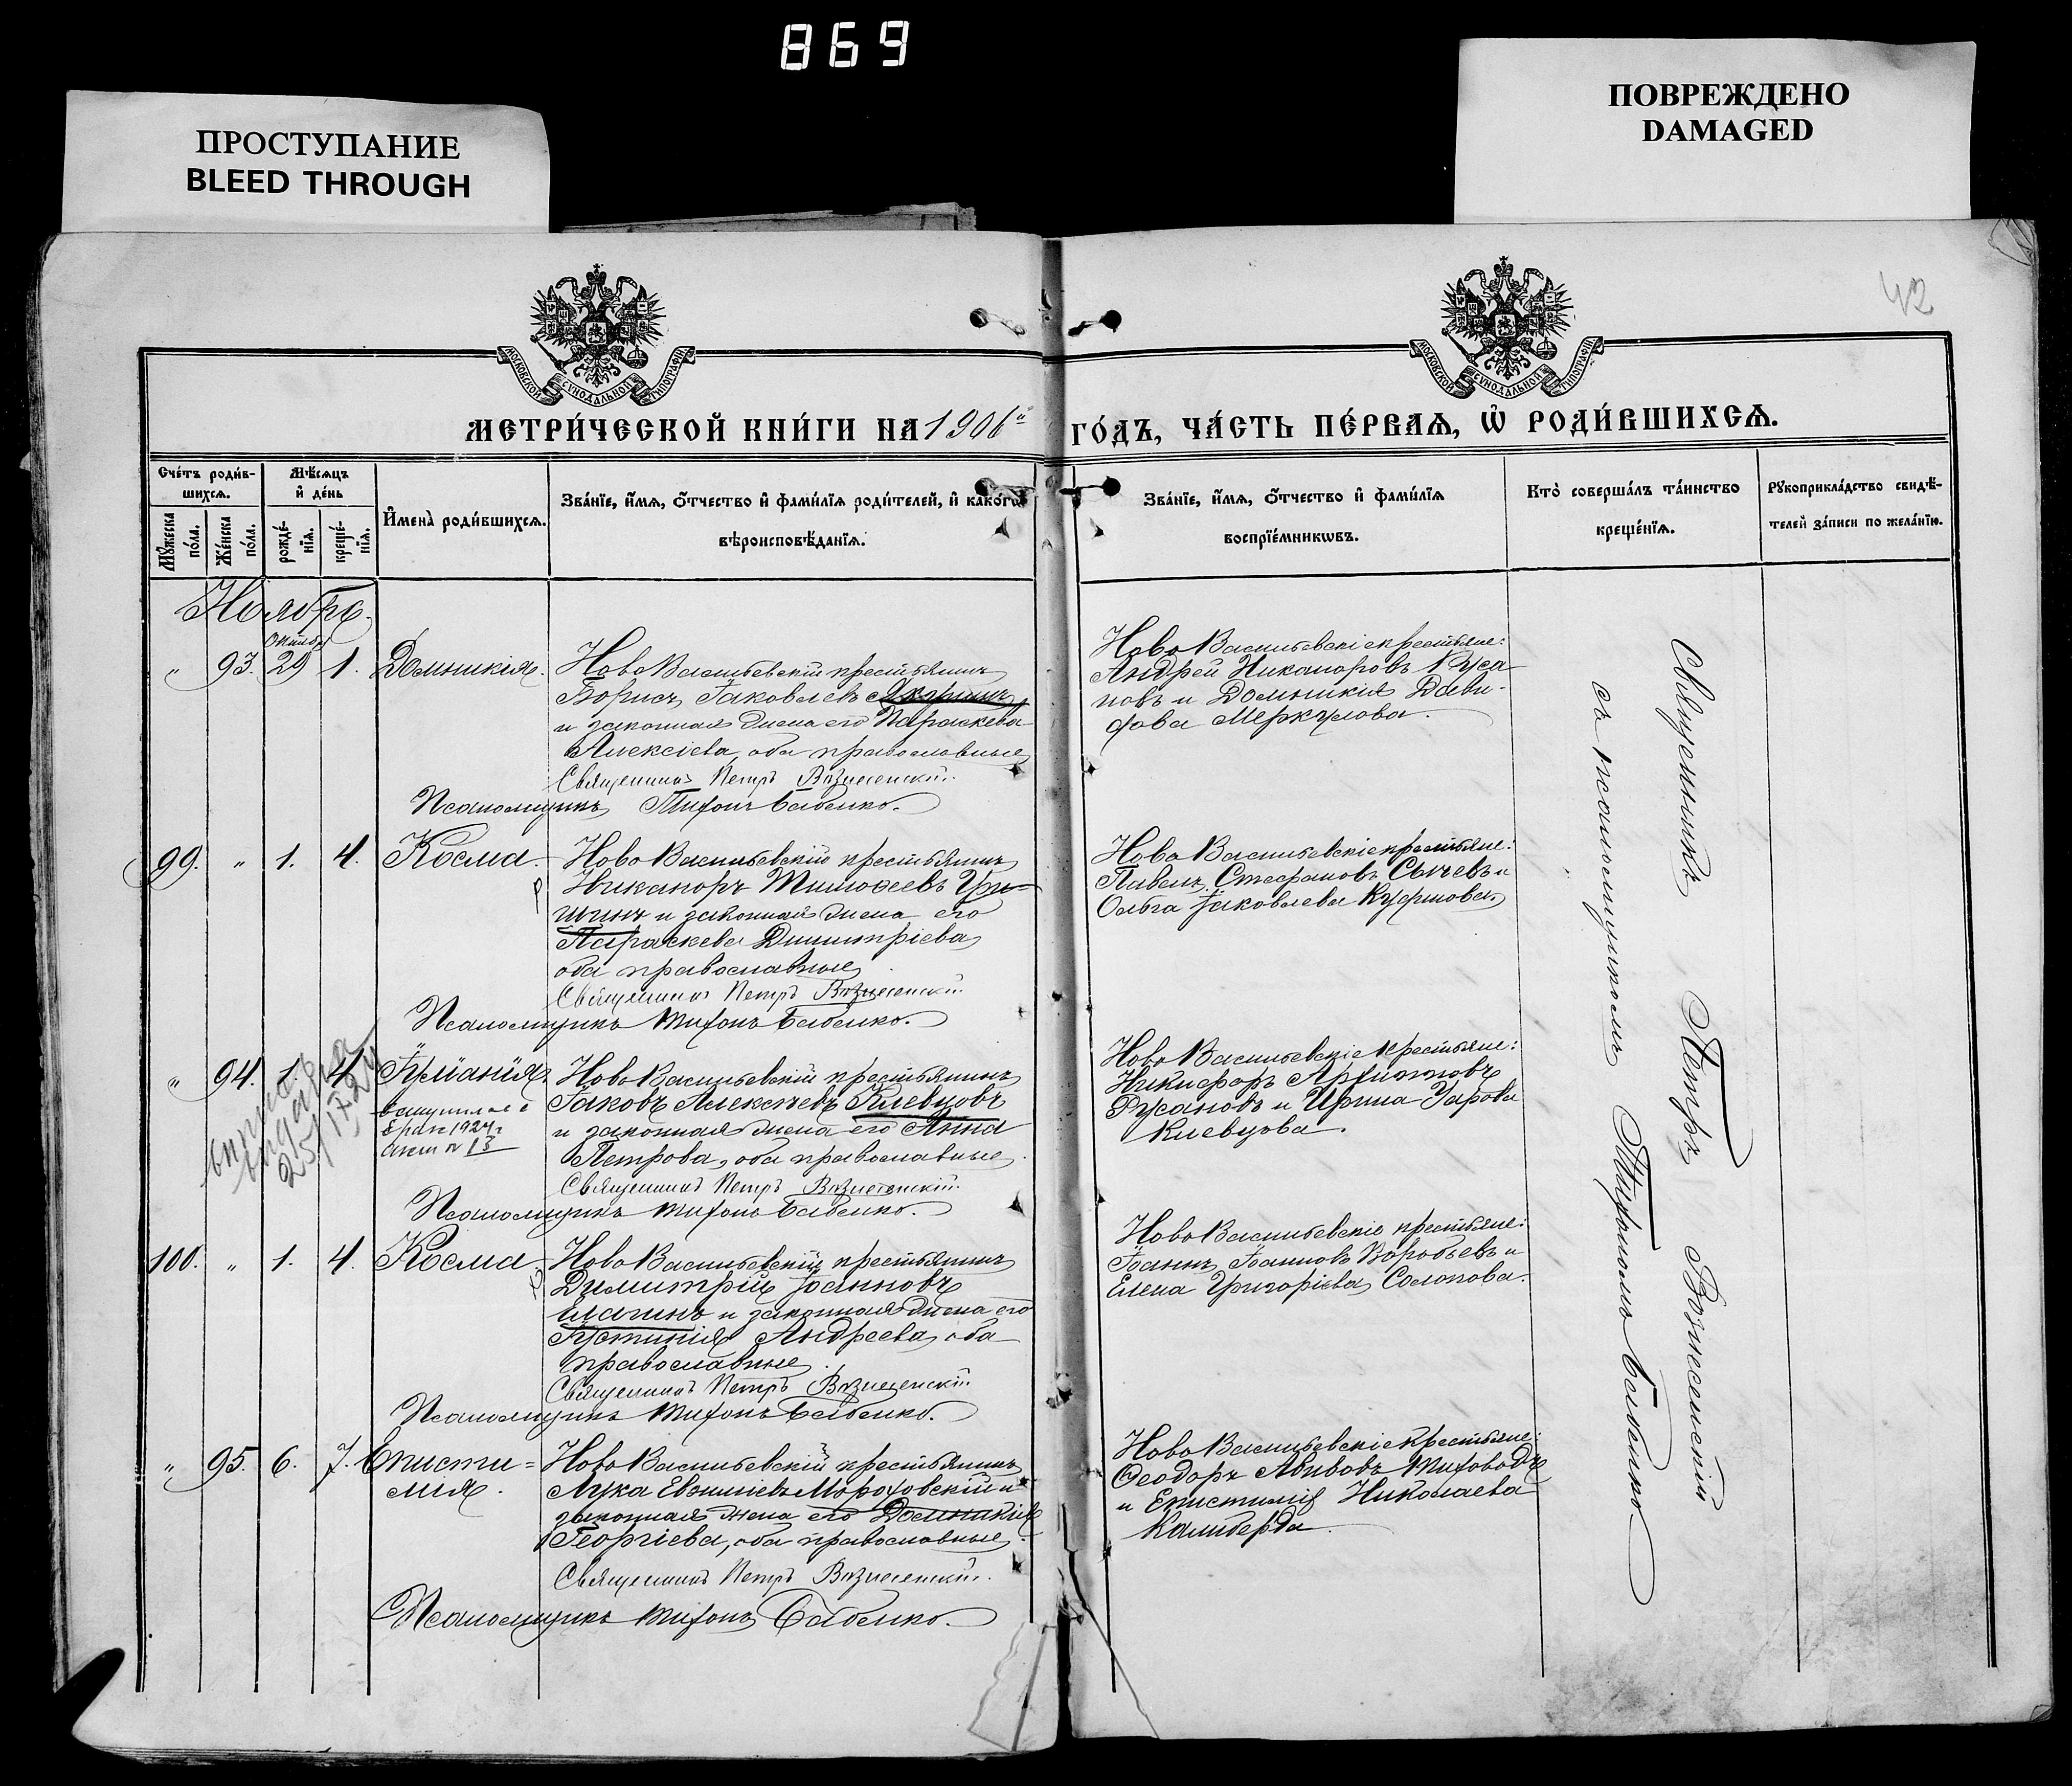 869
ПРОСТУПАНИЕ
BLEED THROUGH
ПОВРЕЖДЕНО
DAMAGED
42
МОСКОВСКОЙ СѴНОДАЛЬНОЙ ТИПОГРАФІИ
МОСКОВСКОЙ СѴНОДАЛЬНОЙ ТИПОГРАФІИ
МЕТРИ́ЧЕСКОЙ КНИ́ГИ НА 1906й ГО́ДЪ, ЧА́СТЬ ПЕ́РВАѦ, Ѡ҆ РОДИ́ВШИХСѦ.
Сче́тъ роди́в-
шихсѧ.
Мѣ́сѧцъ
и҆ де́нь
Мꙋ́жеска
по́ла.
Же́нска
по́ла.
рожде́-
нїѧ.
креще́-
нїѧ.
И҆мена̀ роди́вшихсѧ.
Зва́нїе, и҆́мѧ, ѻ҆́тчество и҆ фами́лїѧ роди́телей, и҆ како́гѡ
вѣроисповѣ́данїѧ.
Зва́нїе, и҆́мѧ, ѻ҆́тчество и҆ фами́лїѧ
воспрїе́мникѡвъ.
Кто̀ соверша́лъ та́инство
креще́нїѧ.
Рꙋкоприкла́дство свидѣ́-
телей за́писи по жела́нїю.
Ноябрь.
Октябр
„ 93. 29 1. Домникія.
Ново Васильевскій крестьянинъ
Борисъ Іаковлевъ
и законная жена его Параскева
Алексіева, оба православные
Священникъ Петръ Вознесенскій.
Псаломщикъ Тихонъ Бабенко.
Ново Васильевскіе крестьяне:
Андрей Никаноровъ Руса-
новъ и Домникія Дави-
дова Меркулова.
99. „ 1. 4. Косма.
Ново Васильевскій крестьянинъ
Никаноръ Тимоѳеевъ Гри-
шинъ и законная жена его
Параскева Димитріева,
оба православные
Священникъ Петръ Вознесенскій.
Псаломщикъ Тихонъ Бабенко.
Ново Васильевскіе крестьяне:
Павелъ Стефановъ Сычевъ и
Ольга Іаковлева
„ 94. 1. 4. Іуліанія.
1924г
13
25/IX 24
Ново Васильевскій крестьянинъ
Іаковъ Алексѣевъ Клевцовъ
и законная жена его Анна
Петрова, оба православные
Священникъ Петръ Вознесенскій.
Псаломщикъ Тихонъ Бабенко.
Ново Васильевскіе крестьяне:
Никифоръ Архиповъ
Русановъ и Ирина
Клевцова.
100. „ 1. 4. Косма.
Ново Васильевскій крестьянинъ
Димитрій Іоанновъ
Елагинъ и законная жена его
Іустинія Андреева, оба
православные.
Священникъ Петръ Вознесенскій.
Псаломщикъ Тихонъ Бабенко.
Ново Васильевскіе крестьяне:
Іоаннъ Іоанновъ Воробьевъ и
Елена Григоріева Солопова.
„ 95. 6. 7. Еписти-
мія.
Ново Васильевскій крестьянинъ
Лука Евѳиміевъ Мороховскій и
законная жена его Домникія
Георгіева, оба православные.
Священникъ Петръ Вознесенскій.
Псаломщикъ Тихонъ Бабенко.
Ново Васильевскіе крестьяне:
Ѳеодоръ
и Епистимія Николаева
Калиберда.
Священникъ Петръ Вознесенскій
съ псаломщикомъ Тихономъ Бабенко